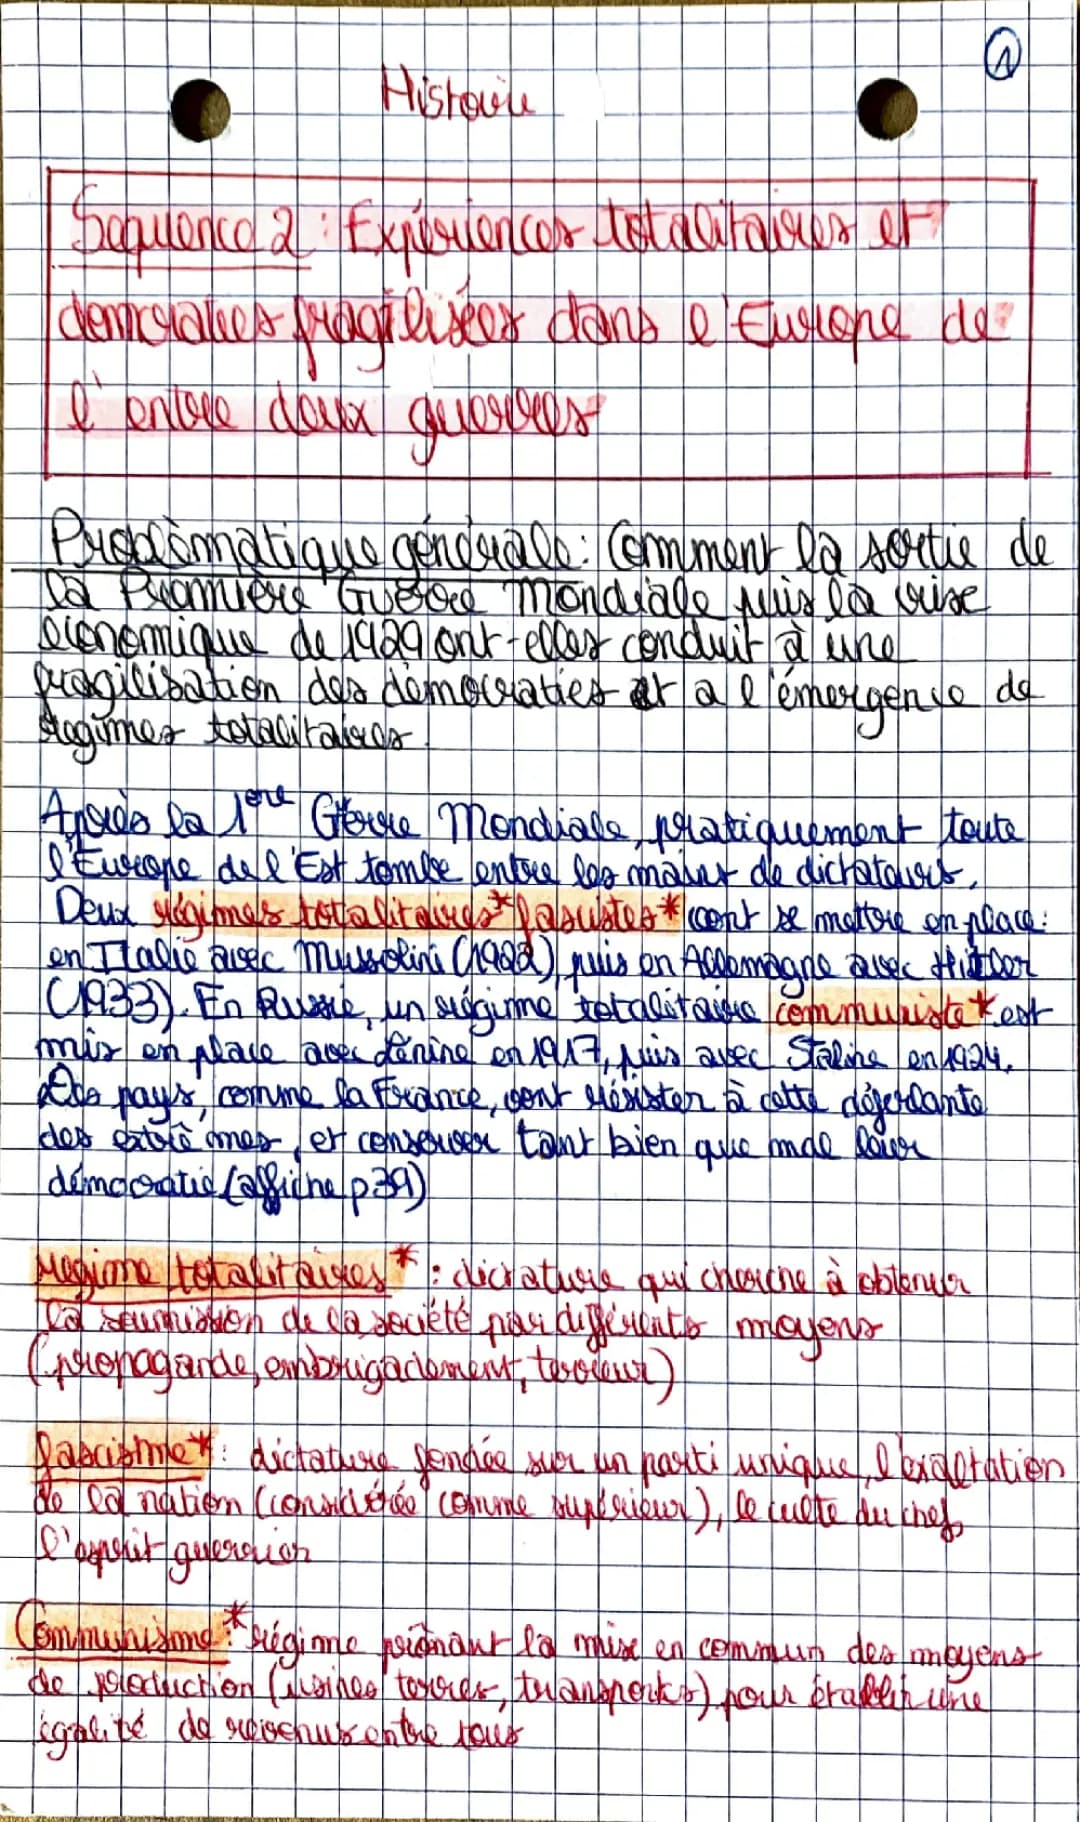 1
Histoire
Séquence 2 : Expériences totalitaires et
démocraties fragilisées dans l'Europe de
l'entre deux guerres
Problèmatique générale : Comment la sortie de
la Première Guerre Mondiale puis la crise
économique de 1929 ont-elles conduit à une
fragilisation des démocraties et a l'émergence de
régimes totalitaires.
Après la 1ère Guerre Mondiale, pratiquement toute
l'Europe de l'Est tombe entre les mains de dictateurs.
Deux régimes totalitaires* fascistes* vont se mettre en place :
en Italie avec Mussolini (1922), puis en Allemagne avec Hitler
(1933). En Russie, un régime totalitaire communiste* est
mis en place avec Lénine en 1917, puis avec Staline en 1924.
Des pays, comme la France, vont résister à cette déferlante
des extrêmes, et conserver tant bien que mal leur
démocratie (affiche p39)
Régime totalitaires* : dictature qui cherche à obtenir
la soumission de la société par différents moyens
(propagande, embrigadement, terreur)
fascisme* : dictature fondée sur un parti unique, l'exaltation
de la nation (considérée comme supérieur), le culte du chef,
l'esprit guerrier
Communisme* : régime prônant la mise en commun des moyens
de production (usines, terres, transports) pour établir une
égalité de revenus entre tous